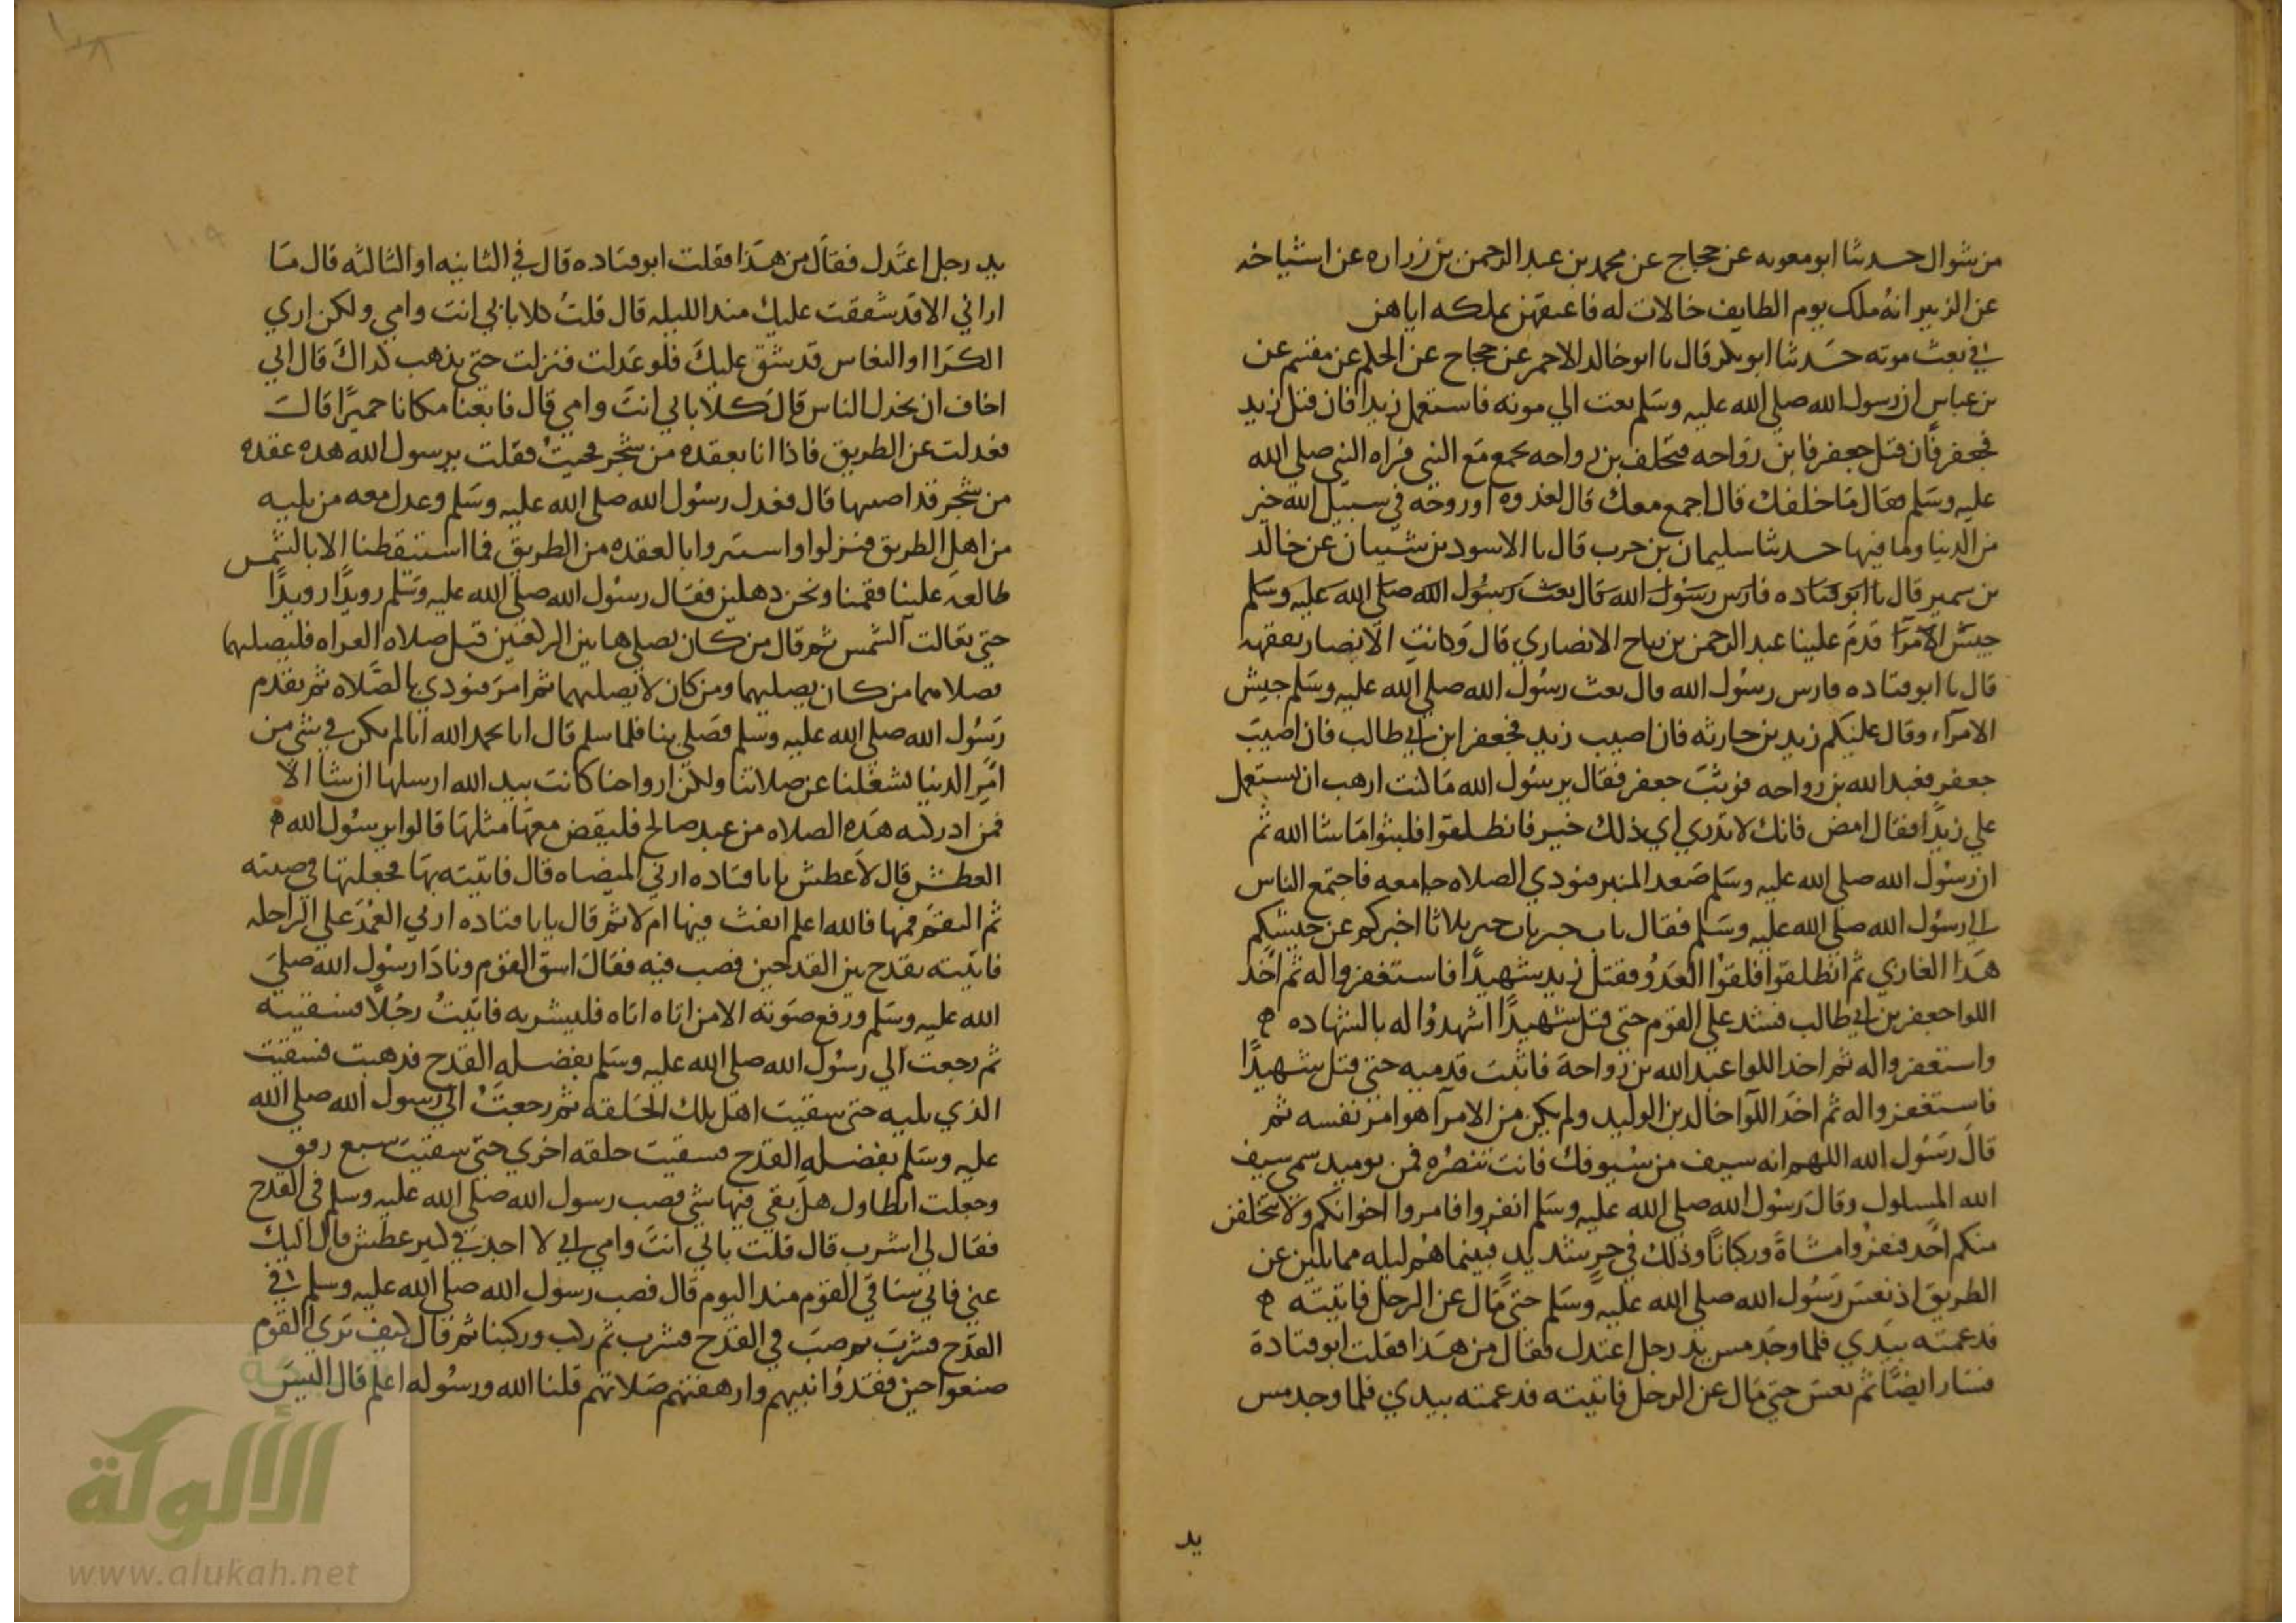 من شوال حدثنا ابو معويه عن حجاج عن محمد بن عبد الرحمن بن زراره عن اشياخه
عن الزبير انه ملك يوم الطايف خالات له فاعتقهن بملكه اياهن
في بعث موته حدثنا ابو بكر قال نا ابو خالد الاحمر عن حجاج عن الحكم عن مقسم عن
بن عباس ان رسول الله صلي الله عليه وسلم بعث الي موته فاستعمل زيدا فان قتل زيد
فجعفر فان قتل جعفر فابن رواحه فتخلف بن رواحه يجمع مع النبي فراه النبي صلي الله
عليه وسلم فقال ما خلفك قال اجمع معك قال لغدوه او روحه في سبيل الله خير
من الدنيا وما فيها حدثنا سليمان بن حرب قال نا الاسود بن شيبان عن خالد
بن سمير قال نا ابو قتاده فارس رسول الله قال بعث رسول الله صلي الله عليه وسلم
جيش الامرا قدم علينا عبد الرحمن بن رباح الانصاري قال وكانت الانصار تفقهه
قال نا ابو قتاده فارس رسول الله قال بعث رسول الله صلي الله عليه وسلم جيش
الامراء وقال عليكم زيد بن حارثه فان اصيب زيد فجعفر ابن ابي طالب فان اصيب
جعفر فعبد الله بن رواحه فوثب جعفر فقال يرسول الله ما كنت ارهب ان تستعمل
علي زيدا فقال امض فانك لا تدري اي ذلك خير فانطلقوا فلبثوا ما شا الله ثم
ان رسول الله صلي الله عليه وسلم صعد المنبر فنودي الصلاه جامعه فاجتمع الناس
الي رسول الله صلي الله عليه وسلم فقال ثاب خبر ثاب خبر ثلاثا اخبركم عن جيشكم
هذا الغازي ثم انطلقوا فلقوا العدو فقتل زيد شهيدا فاستغفروا له ثم اخذ
اللوا جعفر بن ابي طالب فشد علي القوم حتي قتل شهيدا اشهدوا له بالشهاده
واستغفروا له ثم اخذ اللوا عبد الله بن رواحة فاثبت قدميه حتي قتل شهيدا
فاستغفروا له ثم اخذ اللوا خالد بن الوليد ولم يكن من الامرا هو امر نفسه ثم
قال رسول الله اللهم انه سيف من سيوفك فانت تنصره فمن يوميد سمي سيف
الله المسلول وقال رسول الله صلي الله عليه وسلم انفروا فامدوا اخوانكم ولا يتخلفن
منكم احد فنفروا مشاة وركبانا وذلك في حر شديد فبينما هم ليله ممايلين عن
الطريق اذ نعس رسول الله صلي الله عليه وسلم حتي مال عن الرحل فاتيته
فدعمته بيدي فلما وجد مس يد رجل اعتدل فقال من هذا فقلت ابو قتادة
فسار ايضا ثم نعس حتي مال عن الرحل فاتيته فدعمته بيدي فلما وجد مس
يد
يد رجل اعتدل فقال من هذا فقلت ابو قتاده قال في الثانيه او الثالثه قال ما
اراني الا قد شققت عليك منذ الليله قال قلت كلا بابي انت وامي ولكن اري
الكرا او النعاس قد شق عليك فلو عدلت فنزلت حتي يذهب كراك قال اني
اخاف ان يخذل الناس قال كلا بابي انت وامي قال فابغنا مكانا خميرا قال
فعدلت عن الطريق فاذا انا بعقده من شجر فجيت فقلت يرسول الله هذه عقده
من شجر قد اصبتها قال فعدل رسول الله صلي الله عليه وسلم وعدل معه من يليه
من اهل الطريق فنزلوا واستتروا بالعقده من الطريق فما استيقظنا الا بالشمس
طالعه علينا فقمنا ونحن دهلين فقال رسول الله صلي الله عليه وسلم رويدا رويدا
حتي تعالت الشمس ثم قال من كان يصلي هاتين الركعتين قبل صلاه الغداه فليصلهما
فصلاهما من كان يصليهما ومن كان لا يصليهما ثم امر فنودي بالصلاه ثم تقدم
رسول الله صلي الله عليه وسلم فصلي بنا فلما سلم قال انا بحمد الله انا لم نكن في شي من
امر الدنيا يشغلنا عن صلاتنا ولكن ارواحنا كانت بيد الله ارسلها ان شا الا
فمن ادركته هذه الصلاه من عبد صالح فليقض معها مثلها قالوا يرسول الله
العطش قال لا عطش يا با قتاده ارني الميضاه قال فاتيته بها فجعلها في ضبنه
ثم التقم فمها فالله اعلم انفث فيها ام لا ثم قال يا با قتاده ارني الغمر علي الراحله
فاتيته بقدح بين القدحين فصب فيه فقال اسق القوم ونادا رسول الله صلي
الله عليه وسلم ورفع صوته الا من اتاه اناه فليشربه فاتيت رجلا فسقيته
ثم رجعت الي رسول الله صلي الله عليه وسلم بفضله القدح فذهبت فسقيت
الذي يليه حتي سقيت اهل تلك الحلقه ثم رجعت الي رسول الله صلي الله
عليه وسلم بفضله القدح فسقيت حلقه اخري حتي سقيت سبع رفق
وجعلت اتطاول هل بقي فيها شي فصب رسول الله صلي الله عليه وسلم في القدح
فقال لي اشرب قال قلت بابي انت وامي اني لا اجد بي كبير عطش قال اليك
عني فاني ساقي القوم منذ اليوم قال فصب رسول الله صلي الله عليه وسلم في
القدح فشرب ثم صب في القدح فشرب ثم ركب وركبنا ثم قال كيف تري القوم
صنعوا حين فقدوا نبيهم وارهقتهم صلاتهم قلنا الله ورسوله اعلم قال اليس
الألوكة
www.alukah.net